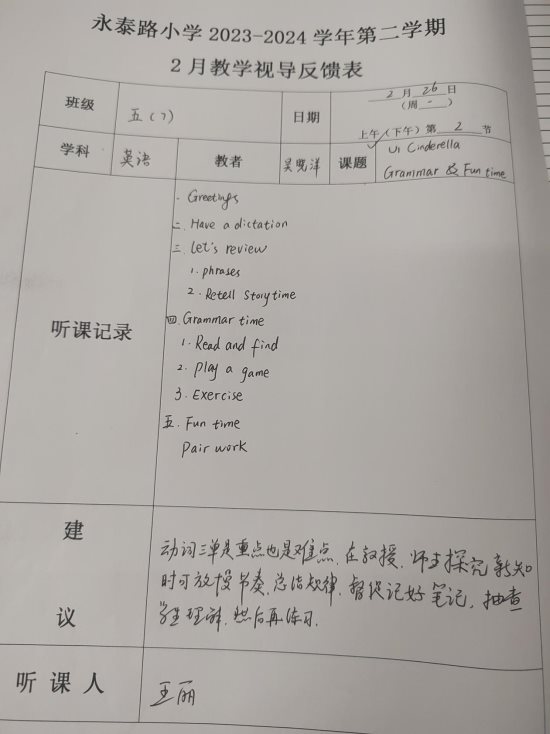 永泰路小学 2023-2024 学年第二学期
2 月教学视导反馈表
班级 五(7) 日期 2 月 26 日
(周 一 )
上午 (下午) 第 2 节
学科 英语 教者 吴晓洋 课题 U1 Cinderella
Grammar & Fun time
听课记录
一. Greetings
二. Have a dictation
三. Let's review
1. phrases
2. Retell Storytime
四. Grammar time
1. Read and find
2. Play a game
3. Exercise
五. Fun time
Pair work
建
议
动词三单是重点也是难点, 在教授, 师生探究新知
时可放慢节奏, 总结规律, 督促记好笔记, 抽查
学生理解, 然后再练习.
听 课 人 王丽